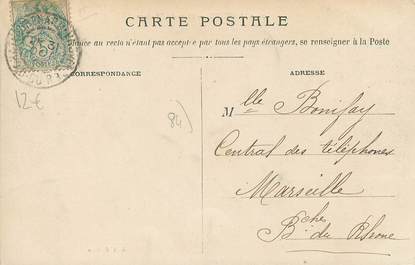 CARTE POSTALE
dance au recto n'étant pas acceptée par tous les pays étrangers, se renseigner à la Poste
CORRESPONDANCE
ADRESSE
Mlle Bonifay
Central des téléphones
Marseille
Bches du Rhone
12€
84)